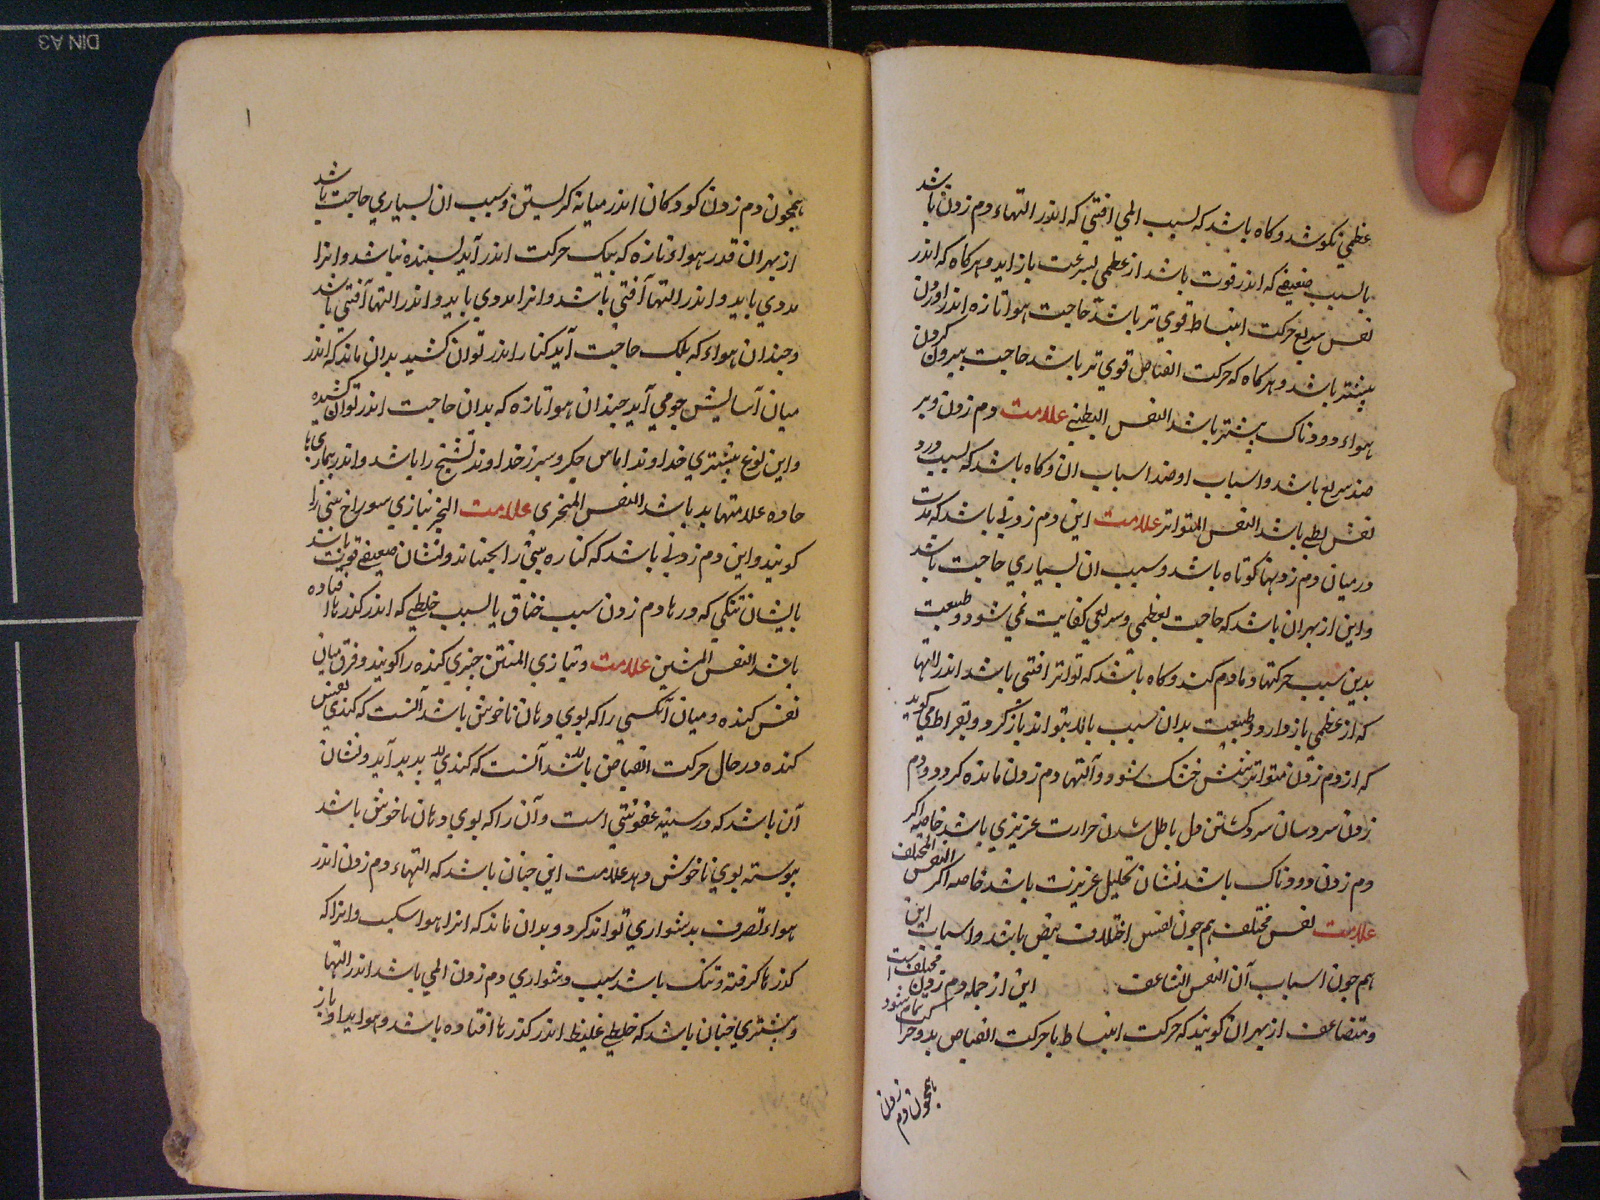 عظمی نکوشد و کاه باشد که بسبب المی افتی که اندر التهاء دم زدن باشد
یا بسبب ضعیفی که اندر قوت باشد از عظمی بسرعت باز اید و هرکاه که اندر
نفس سریع حرکت انبساط قوی تر باشد حاجت هوا تازه اندر اوردن
بیشتر باشد و هرکاه که حرکت انقباض قوی تر باشد حاجت بیرون کردن
هواء دودناک بیشتر باشد النفس البطیئ علامت دم زدن دیر
ضد سریع باشد و اسباب او ضد اسباب ان و کاه باشد که بسبب درد
نفس بطی باشد النفس المتواتر علامت این دم زدنی باشد که مدت
درمیان دم زدنها کوتاه باشد و سبب ان بسیاری حاجت باشد
و این از بهر ان باشد که حاجت بعظمی و سریعی کفایت نمی شود و طبیعت
بدین سبب حرکتها دمادم کند و کاه باشد که تواتر افتی باشد اندر التها
که از عظمی باز دارد و طبیعت بدان سبب بالا بتواند باز کرد و بقراط می کوید
که از دم زدن متواتر شش خشک شود و آلتهاء دم زدن مانده کردد و دم
زدن سرد سان سرد کشتن دل باطل شدن حرارت غریزی باشد خاصه اکر
دم زدن دودناک باشد نشان تحلیل غریزت باشد خاصه اکر النفس المختلف
علامت نفس مختلف هم چون نفس اختلاف نبض باشد و اسباب این
هم چون اسباب آن النفس المتضاعف این از جمله دم زدن مختلف است
و متضاعف از بهر ان کویند که حرکت انبساط یا حرکت انقباض بدو حرکت تمام شود
همچون دم زدن
همچون دم زدن کودکان اندر میانه کریستن و سبب ان بسیاری حاجت باشد
از بهر ان قدر هواء تازه که بیک حرکت اندر آید بسنده نباشد و انرا
مددی باید و اندر التها آفتی باشد و انرا مددی باید و اندر التها آفتی باشد
و چندان هواء که بلک حاجت آید کنار اندر توان کشید بدان ماند که اندر
میان آسایش جومی آید چندان هوا تازه که بدان حاجت اندر توان کشیده
و این نوع بیشتری خداوند اماس جکر و سبرز خداوند تشنج را باشد و اندر بیماریها
حاده علامتها بد باشد النفس المنخری علامت النخر بتازی سوراخ بینی را
کویند و این دم زدنی باشد که کناره بینی را بجنباند و نشان ضعیفی قوت باشد
یا نشان تنکی که در ها دم زدن سبب خناق یا بسبب خلطی که اندر کذرها افتاده
باشد النفس المنتن علامت و بتازی المنتن چیزی کنده را کویند و فرق میان
نفس کنده و میان آنکسی را که بوی دهان ناخوش باشد آنست که کندی نفس
کنده در حال حرکت انقباض باشد آنست که کندی بدید آید و نشان
آن باشد که در سینه عفونتی است و آن را که بوی دهان ناخوش باشد
پیوسته بوی ناخوش دهد علامت این چنان باشد که التهاء دم زدن اندر
هواء تصرف بدشواری تواند کرد و بدان ماند که انرا هوا سبک و انرا که
کذرها کرفته و تنک باشد سبب دشواری دم زدن المی باشد اندر التها
و بیشتری چنان باشد که خلطی غلیظ اندر کذرها افتاده باشد و هوا را باز